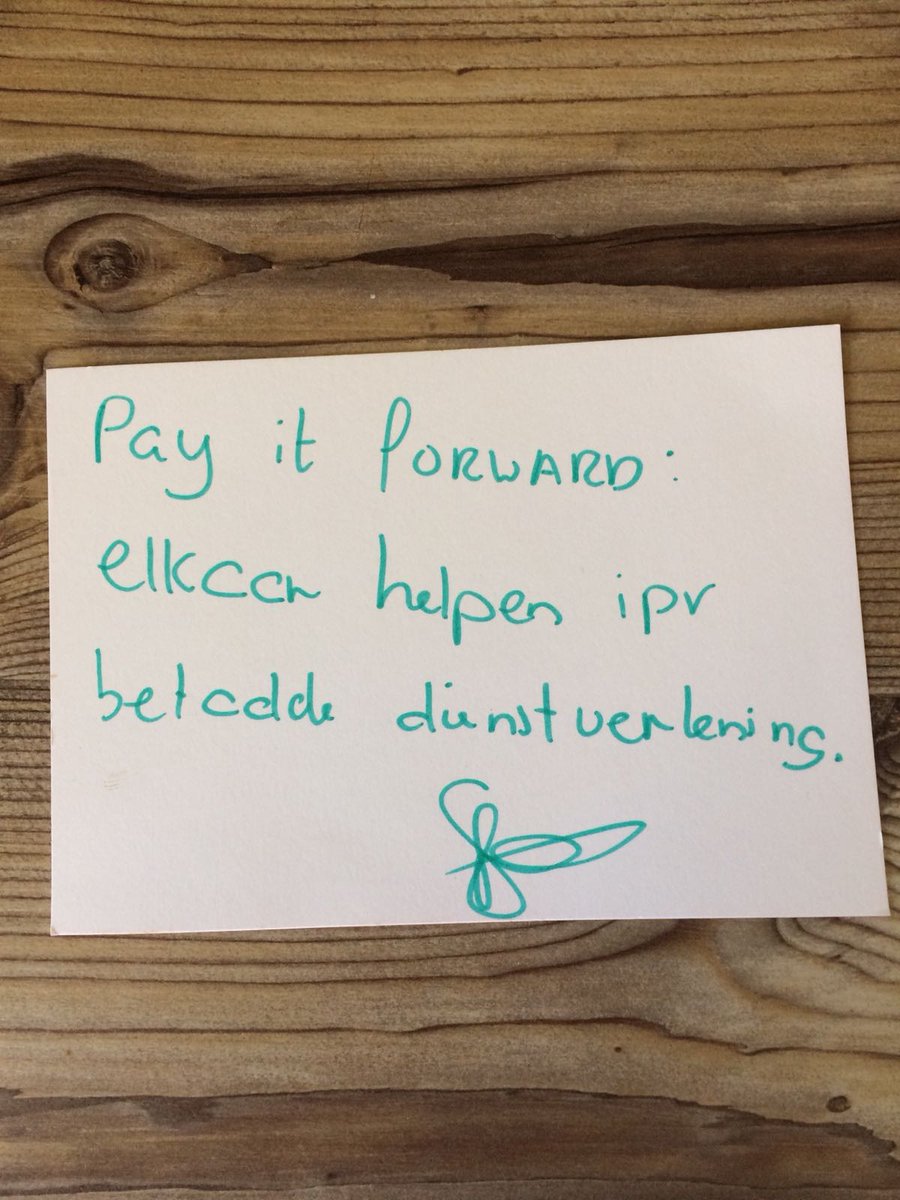 Pay it forward:
elkaar helpen ipv
betaalde dienstverlening.